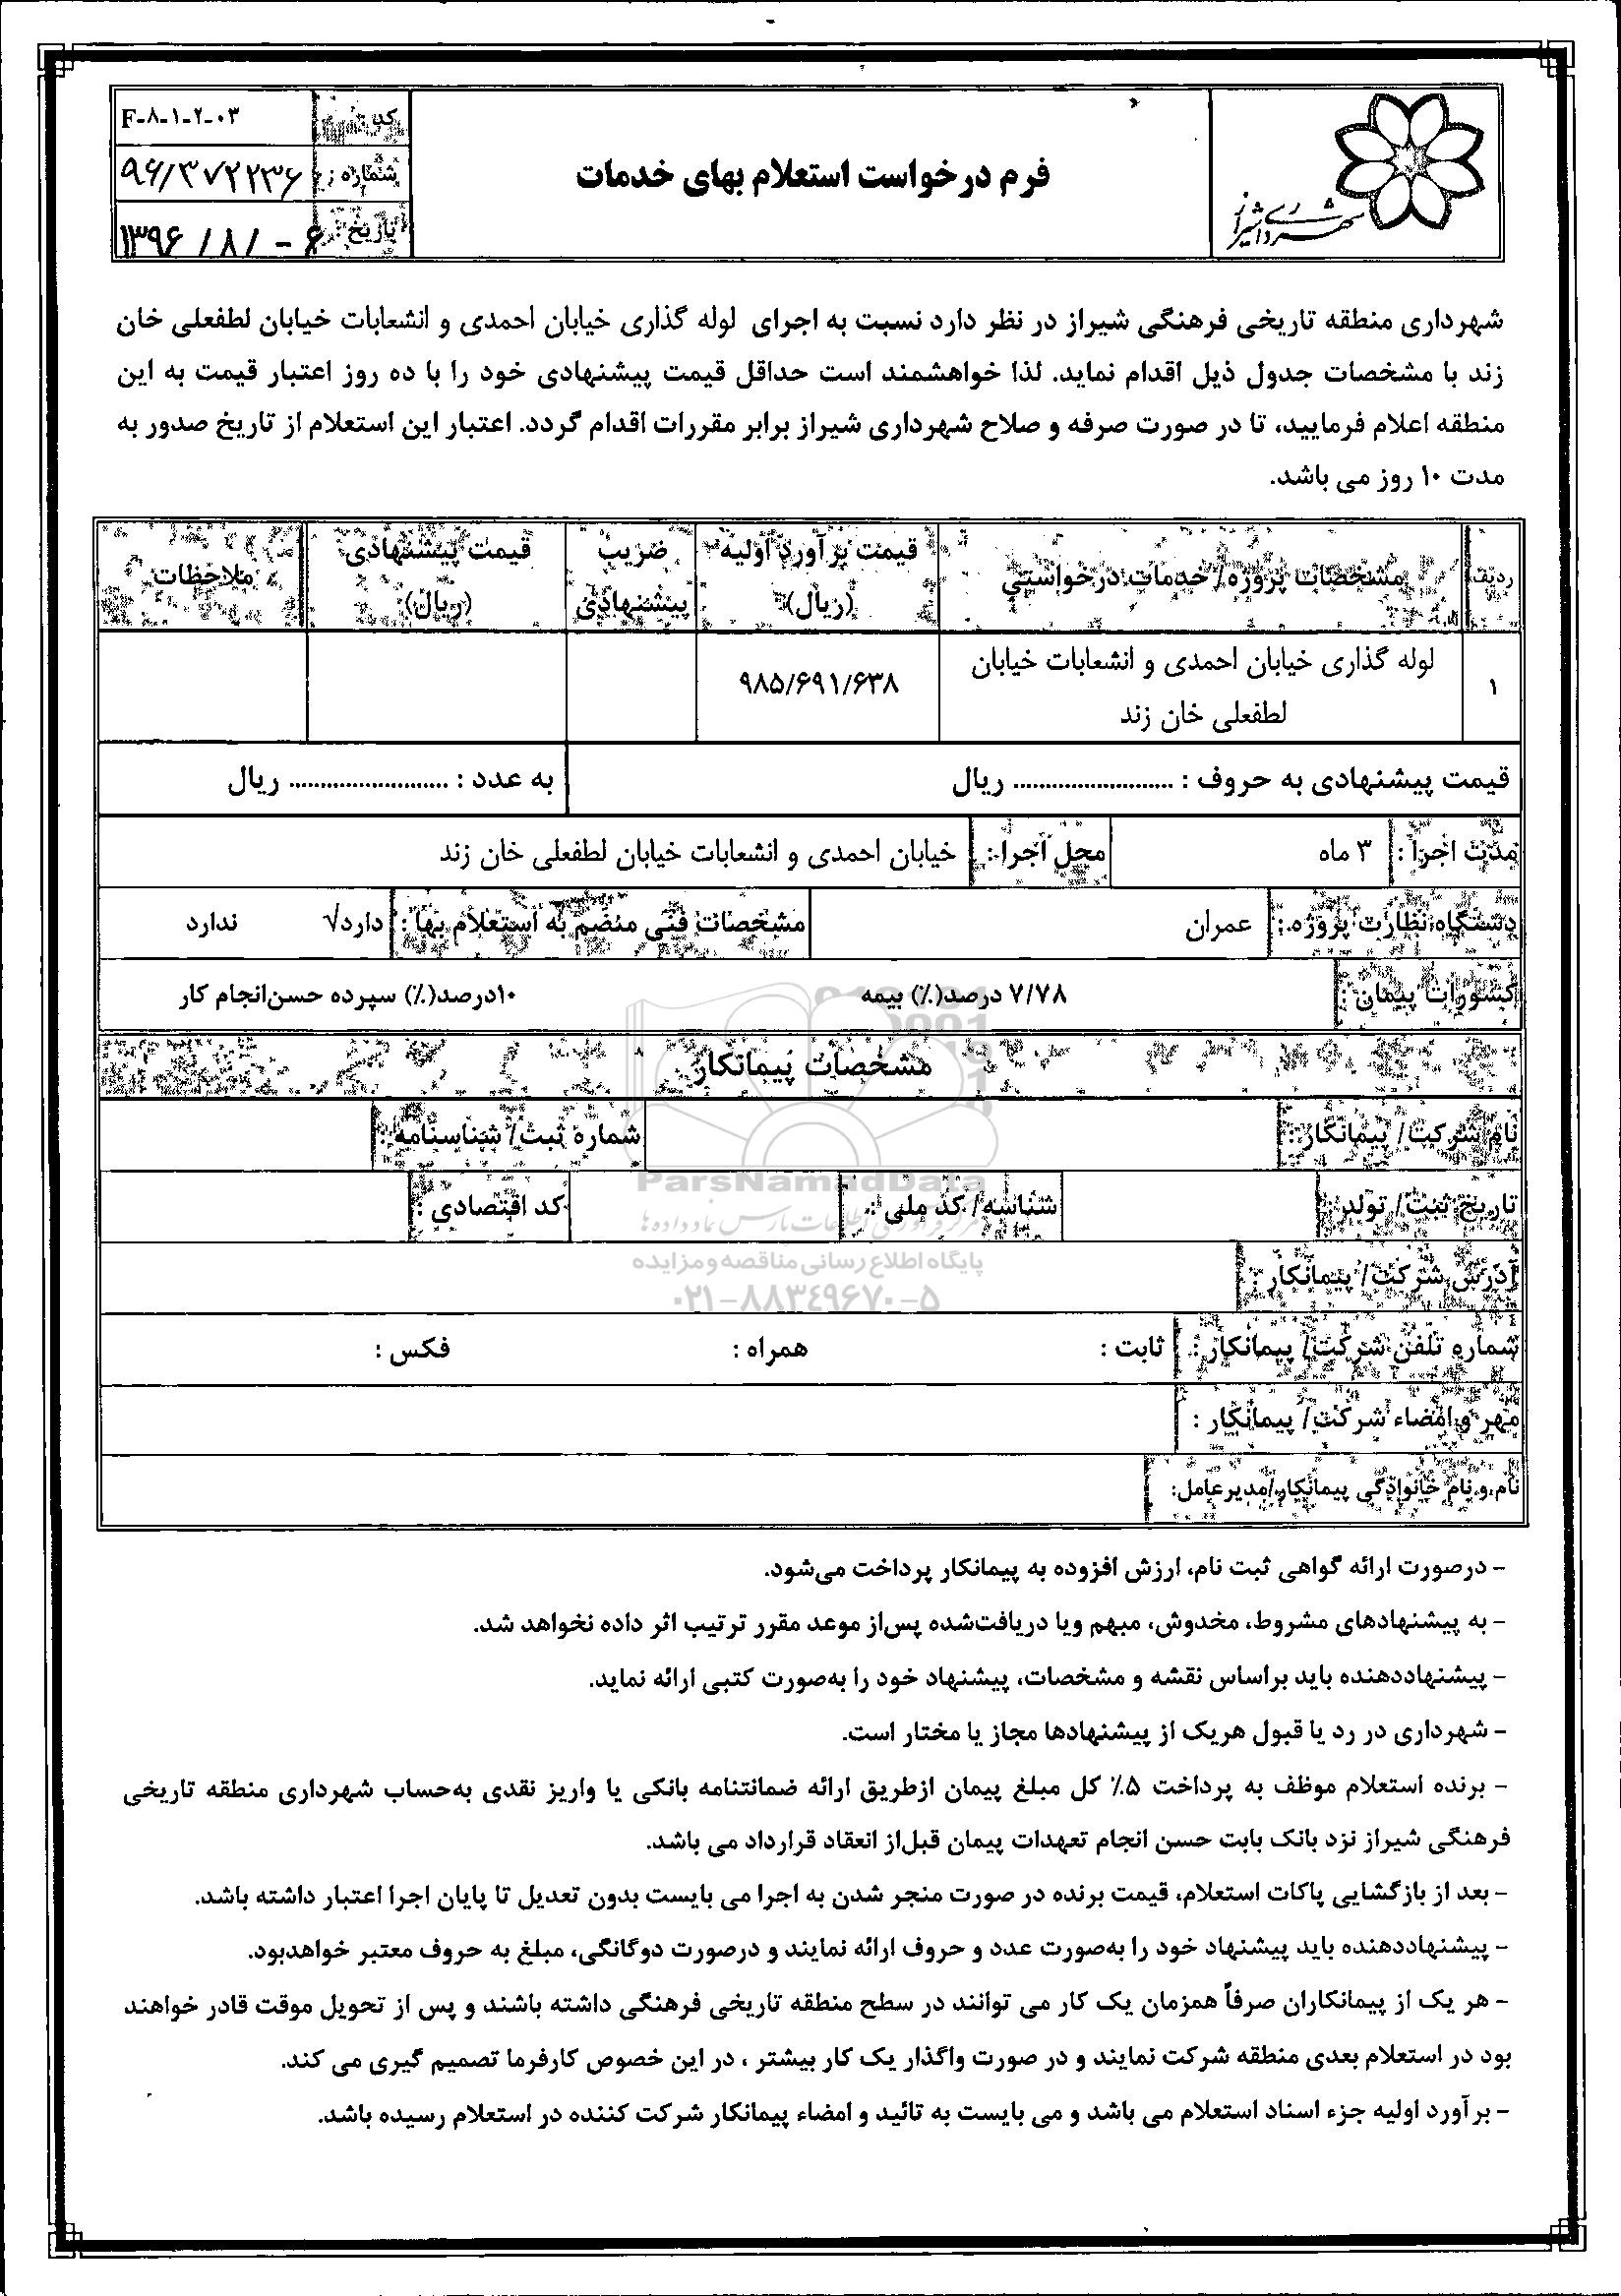 شهرداری شیراز
فرم درخواست استعلام بهای خدمات
کد : F-۸-۱-۲-۰۳
شماره : ۹۶/۳۷۲۲۳۶
تاریخ : ۱۳۹۶/۸/-۶
شهرداری منطقه تاریخی فرهنگی شیراز در نظر دارد نسبت به اجرای لوله گذاری خیابان احمدی و انشعابات خیابان لطفعلی خان
زند با مشخصات جدول ذیل اقدام نماید. لذا خواهشمند است حداقل قیمت پیشنهادی خود را با ده روز اعتبار قیمت به این
منطقه اعلام فرمایید، تا در صورت صرفه و صلاح شهرداری شیراز برابر مقررات اقدام گردد. اعتبار این استعلام از تاریخ صدور به
مدت ۱۰ روز می باشد.
ردیف مشخصات پروژه/ خدمات درخواستی قیمت برآورد اولیه (ریال) ضریب پیشنهادی قیمت پیشنهادی (ریال) ملاحظات
۱ لوله گذاری خیابان احمدی و انشعابات خیابان لطفعلی خان زند ۹۸۵/۶۹۱/۶۳۸
قیمت پیشنهادی به حروف : ......................... ریال به عدد : ......................... ریال
مدت اجرا : ۳ ماه محل اجرا : خیابان احمدی و انشعابات خیابان لطفعلی خان زند
دستگاه نظارت پروژه : عمران مشخصات فنی منضم به استعلام بها : دارد√ ندارد
کسورات پیمان : ۷/۷۸ درصد(٪) بیمه ۱۰درصد(٪) سپرده حسن‌انجام کار
مشخصات پیمانکار
نام شرکت/ پیمانکار : شماره ثبت/ شناسنامه :
تاریخ ثبت/ تولد : شناسه/ کد ملی : کد اقتصادی :
آدرس شرکت/ پیمانکار :
شماره تلفن شرکت/ پیمانکار : ثابت : همراه : فکس :
مهر و امضاء شرکت/ پیمانکار :
نام و نام خانوادگی پیمانکار/مدیرعامل:
ParsNamadData
پایگاه اطلاع رسانی مناقصه و مزایده
۰۲۱-۸۸۳۴۹۶۷۰-۵
- درصورت ارائه گواهی ثبت نام، ارزش افزوده به پیمانکار پرداخت می‌شود.
- به پیشنهادهای مشروط، مخدوش، مبهم ویا دریافت‌شده پس‌از موعد مقرر ترتیب اثر داده نخواهد شد.
- پیشنهاددهنده باید براساس نقشه و مشخصات، پیشنهاد خود را به‌صورت کتبی ارائه نماید.
- شهرداری در رد یا قبول هریک از پیشنهادها مجاز یا مختار است.
- برنده استعلام موظف به پرداخت ۵٪ کل مبلغ پیمان ازطریق ارائه ضمانتنامه بانکی یا واریز نقدی به‌حساب شهرداری منطقه تاریخی
فرهنگی شیراز نزد بانک بابت حسن انجام تعهدات پیمان قبل‌از انعقاد قرارداد می باشد.
- بعد از بازگشایی پاکات استعلام، قیمت برنده در صورت منجر شدن به اجرا می بایست بدون تعدیل تا پایان اجرا اعتبار داشته باشد.
- پیشنهاددهنده باید پیشنهاد خود را به‌صورت عدد و حروف ارائه نمایند و درصورت دوگانگی، مبلغ به حروف معتبر خواهدبود.
- هر یک از پیمانکاران صرفاً همزمان یک کار می توانند در سطح منطقه تاریخی فرهنگی داشته باشند و پس از تحویل موقت قادر خواهند
بود در استعلام بعدی منطقه شرکت نمایند و در صورت واگذار یک کار بیشتر ، در این خصوص کارفرما تصمیم گیری می کند.
- برآورد اولیه جزء اسناد استعلام می باشد و می بایست به تائید و امضاء پیمانکار شرکت کننده در استعلام رسیده باشد.